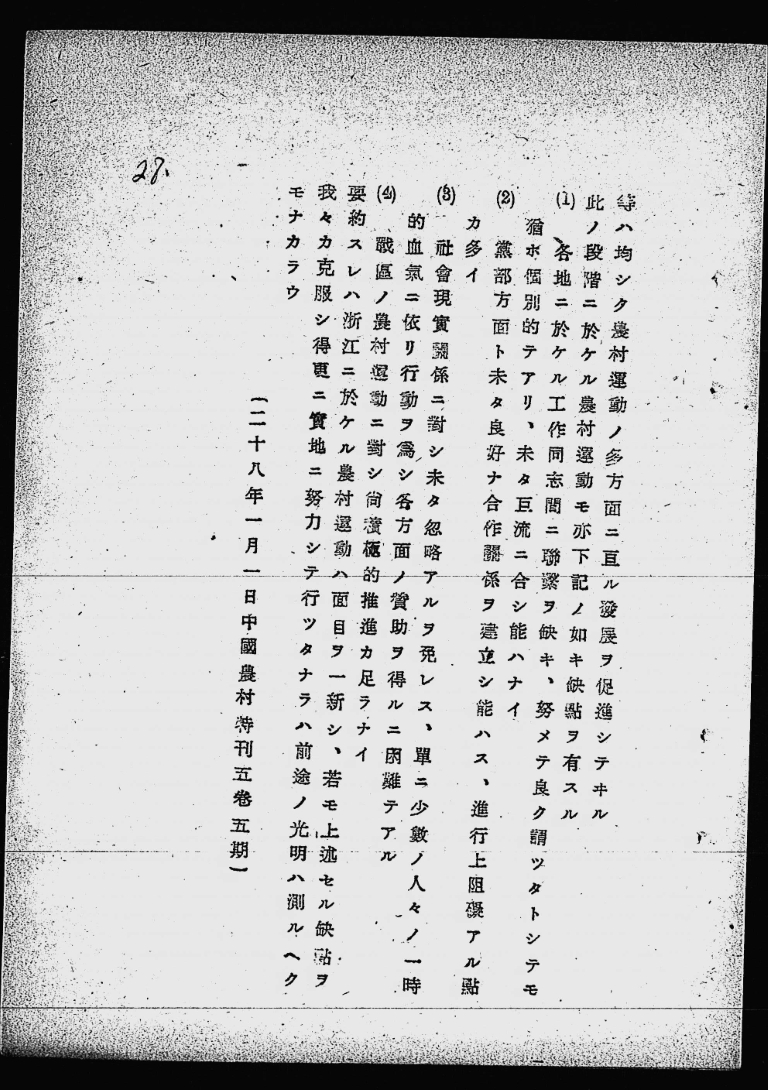 28.
等ハ均シク農村運動ノ多方面ニ亘ル發展ヲ促進シテヰル
此ノ段階ニ於ケル農村運動モ亦下記ノ如キ缺點ヲ有スル
(1) 各地ニ於ケル工作同志間ニ聯繫ヲ缺キ、努メテ良ク謂ツタトシテモ
猶ホ個別的テアリ、未タ巨流ニ合シ能ハナイ
(2) 黨部方面ト未タ良好ナ合作關係ヲ建立シ能ハス、進行上阻礙アル點
カ多イ
(3) 社會現實關係ニ對シ未タ忽略アルヲ免レス、單ニ少數ノ人々ノ一時
的血氣ニ依リ行動ヲ爲シ各方面ノ賛助ヲ得ルニ困難テアル
(4) 戰區ノ農村運動ニ對シ尙積極的推進カ足ラナイ
要約スレハ浙江ニ於ケル農村運動ハ面目ヲ一新シ、若モ上述セル缺點ヲ
我々カ克服シ得更ニ實地ニ努力シテ行ツタナラハ前途ノ光明ハ測ルヘク
モナカラウ
(二十八年一月一日中國農村特刊五卷五期)